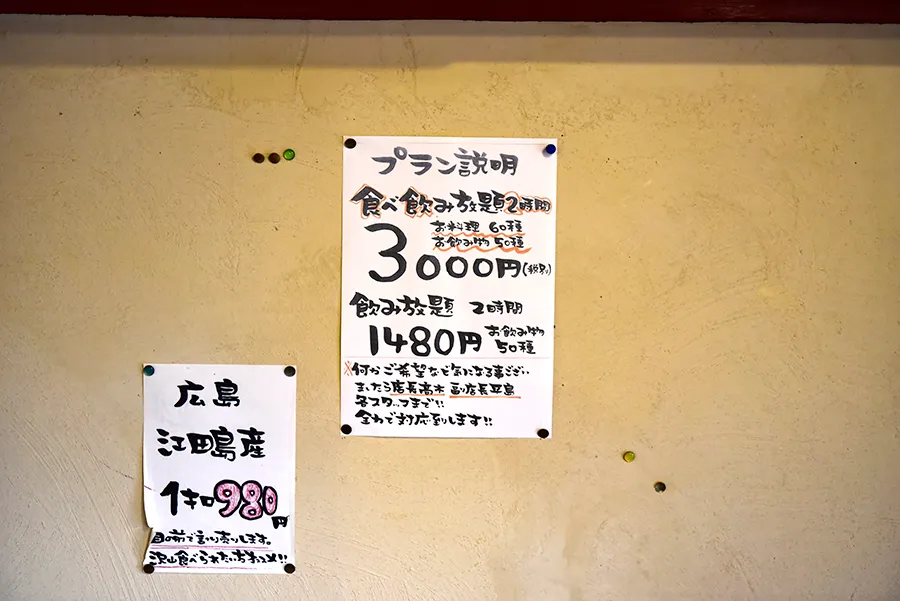 プラン説明
食べ飲み放題2時間
お料理 60種
お飲み物 50種
3000円(税別)
飲み放題 2時間
1480円
お飲み物
50種
※何かご希望など気になる事ござい
ましたら店長高木 副店長平島
各スタッフまで!!
全力で対応致します!!
広島
江田島産
1キロ980円
目の前で量り売りします。
沢山食べられたい方オススメ!!